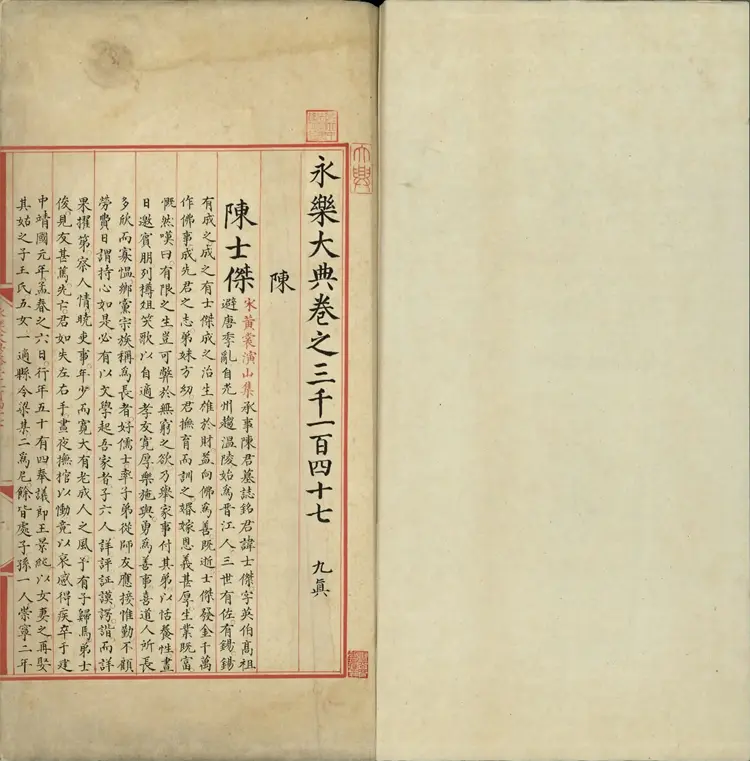 永樂大典卷之三千一百四十七 九真
陳
陳士傑 宋黃裳演山集承事陳君墓誌銘君諱士傑字英伯髙祖
避唐季亂自光州趨溫陵始爲晋江人三世有佐有錫錫
有成之成之有士傑成之治生雄於財益向佛爲善既逝士傑發金千萬
作佛事成先君之志弟妹方幼君撫育而訓之婚嫁恩義甚厚生業既富
慨然嘆曰有限之生豈可弊於無窮之欲乃舉家事付其弟以恬養性晝
日邀賓朋列樽俎笑歌以自適孝友寬厚樂施與勇爲善事喜道人所長
多欣而寡愠鄉黨宗族稱爲長者好儒士率子弟從師友應接惟勤不顧
勞費日謂持心如是必有以文學起吾家者子六人詳評証謨諤諧而詳
果擢第察人情曉吏事年少而寬大有老成人之風予有子歸馬弟士
俊見友甚篤先亡君如失左右手晝夜撫棺以慟竟以哀感得疾卒于建
中靖國元年孟春之六日行年五十有四奉議郎王景純以女妻之再娶
其姑之子王氏五女一適縣令梁某二爲尼餘皆處子孫一人崇寧二年